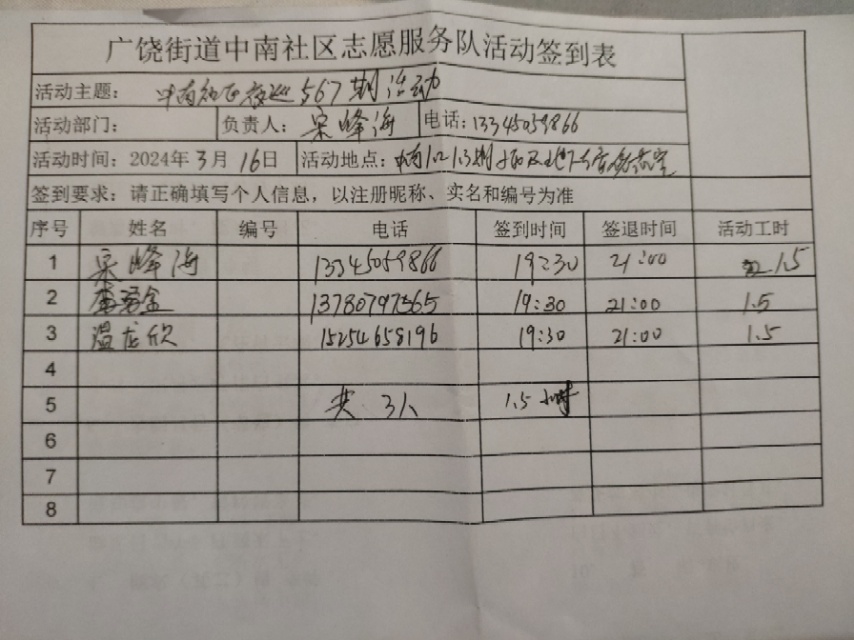 广饶街道中南社区志愿服务队活动签到表
活动主题： 中南社区夜巡567期活动
活动部门： 负责人： 宋峰海 电话：13345059866
活动时间：2024年3月16日 活动地点：中南1.2.1.3期
签到要求：请正确填写个人信息，以注册昵称、实名和编号为准
序号 姓名 编号 电话 签到时间 签退时间 活动工时
1 宋峰海 13345059866 19:30 21:00 1.5
2 13780797565 19:30 21:00 1.5
3 温龙欣 15254658196 19:30 21:00 1.5
4
5 共 3人 1.5小时
6
7
8